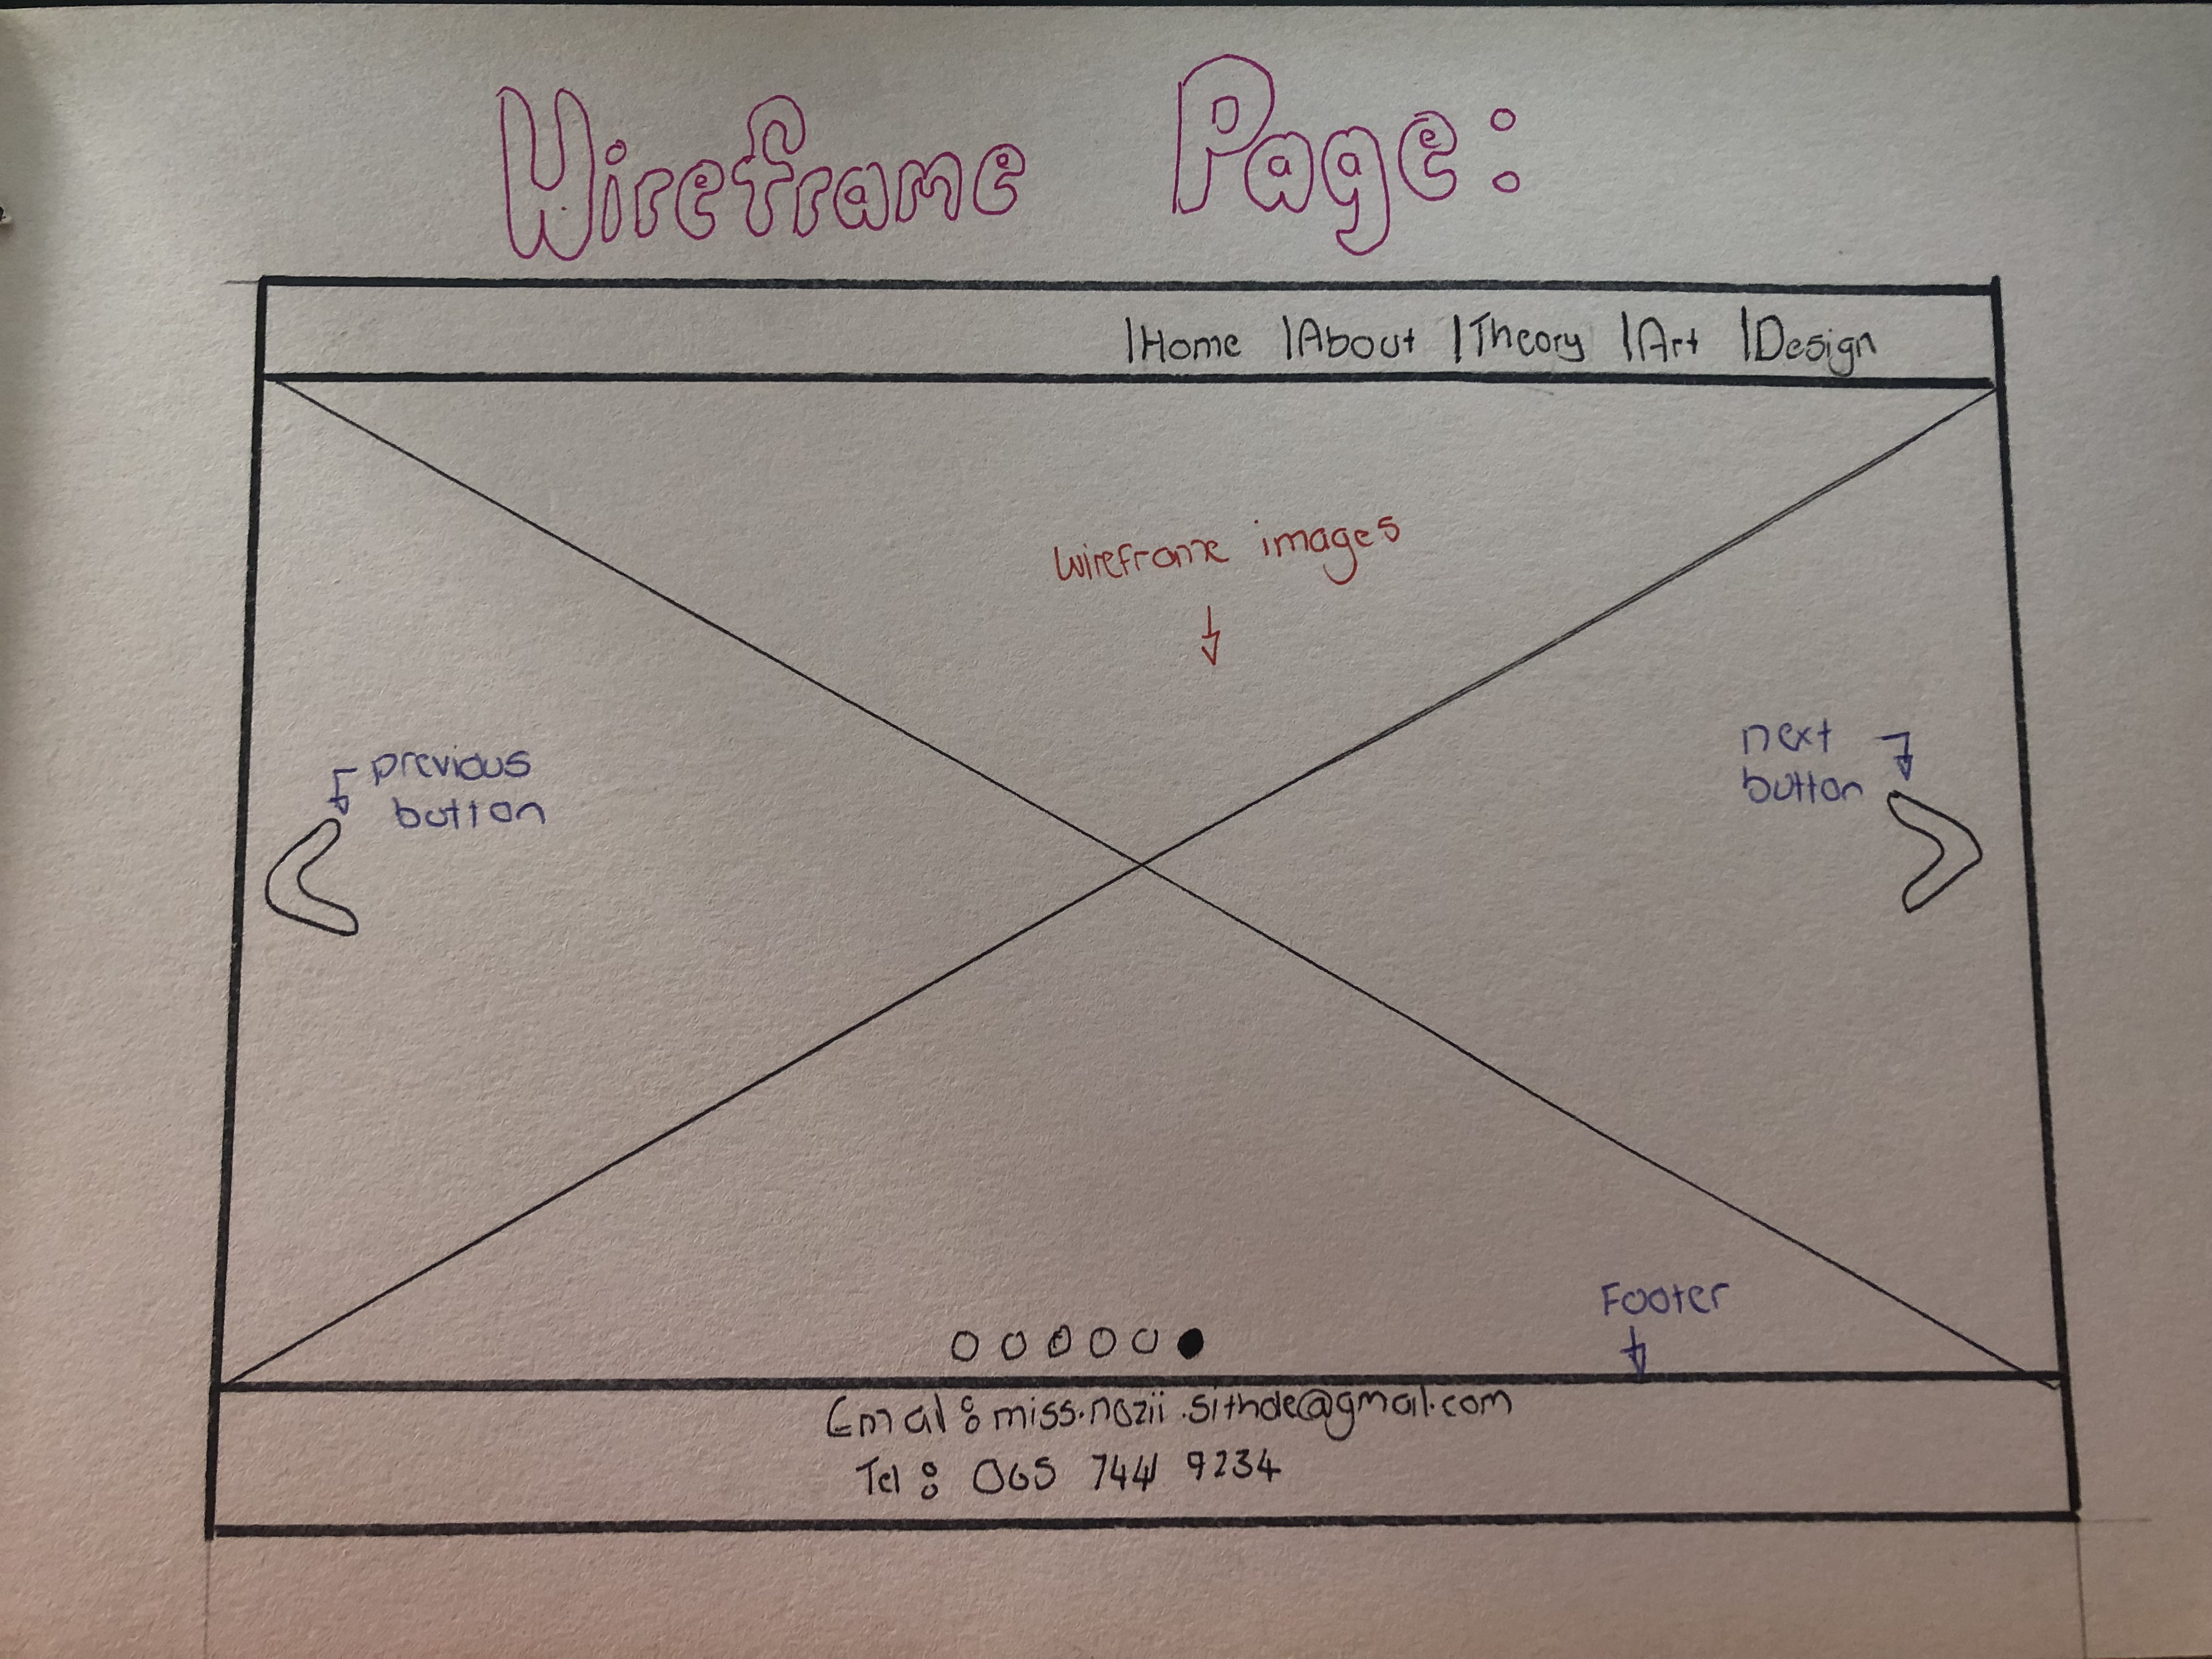 Wireframe Page:
|Home |About |Theory |Art |Design
wireframe images
previous
button
next
button
Footer
Email: miss.nozii.sithole@gmail.com
Tel: 065 744 9234